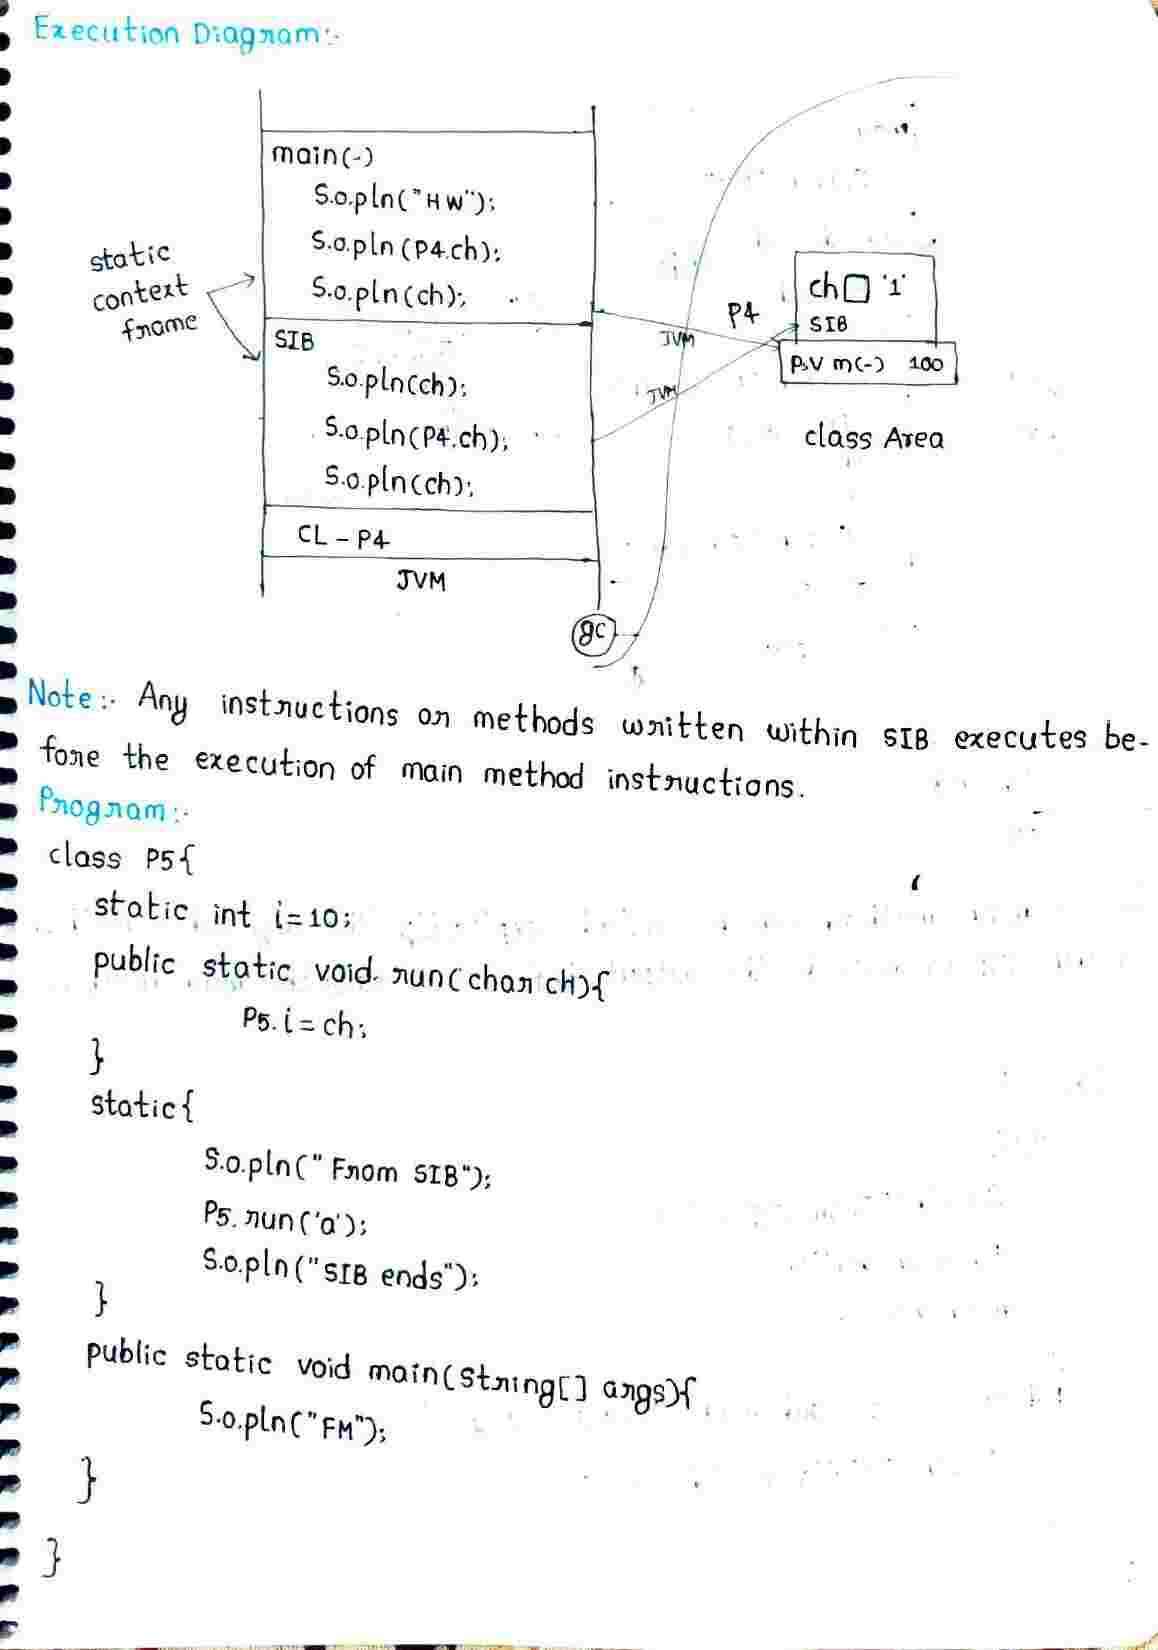 Execution Diagram:-
main(-)
S.o.pln("HW");
S.o.pln(P4.ch);
S.o.pln(ch);
static
context
frame
SIB
S.o.pln(ch);
S.o.pln(P4.ch);
S.o.pln(ch);
CL - P4
JVM
gc
JVM
JVM
P4
ch '1'
SIB
P.S.V m(-) 100
class Area
Note:- Any instructions or methods written within SIB executes be-
fore the execution of main method instructions.
Program:-
class P5{
static int i=10;
public static void run(char cH){
P5.i = ch;
}
static{
S.o.pln(" From SIB");
P5.run('a');
S.o.pln("SIB ends");
}
public static void main(String[] args){
S.o.pln("FM");
}
}